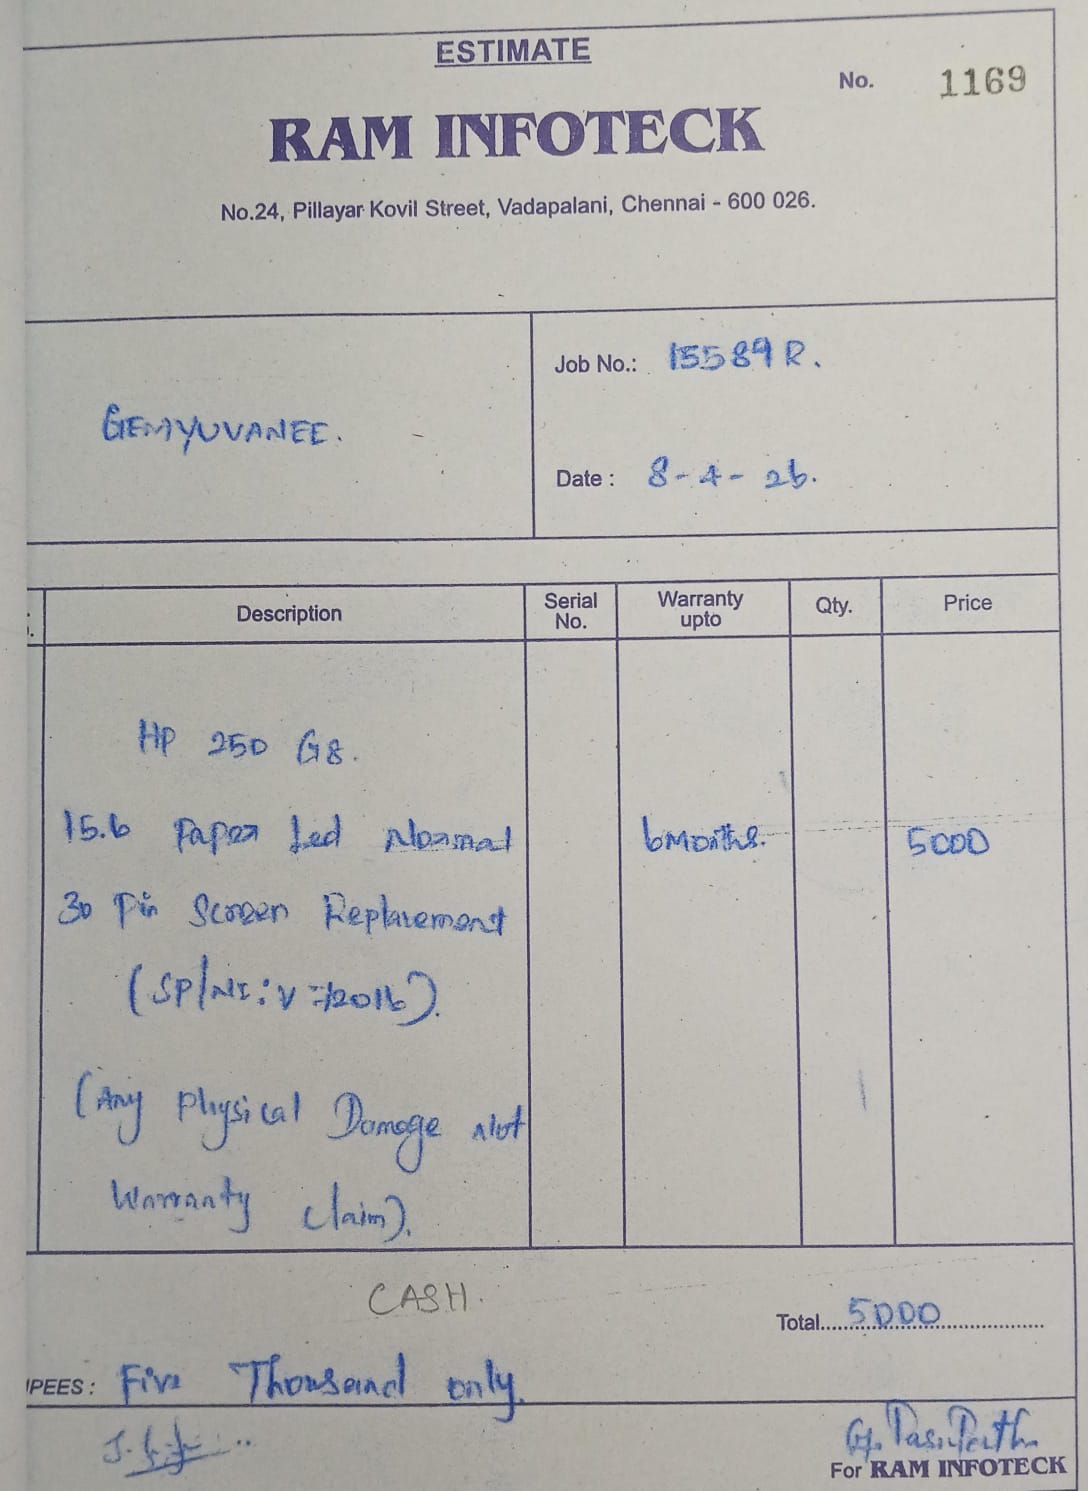 ESTIMATE
No. 1169
RAM INFOTECK
No.24, Pillayar Kovil Street, Vadapalani, Chennai - 600 026.
Job No.: 15589 R.
GEMYUVANEE.
Date : 8-4-26.
Description Serial No. Warranty upto Qty. Price
HP 250 G8.
15.6 Paper Led Normal 6 Months. 5000
30 Pin Screen Replacement
(Any Physical Damage Not
Warranty Claim).
CASH.
Total 5000
UPEES : Five Thousand only.
For RAM INFOTECK